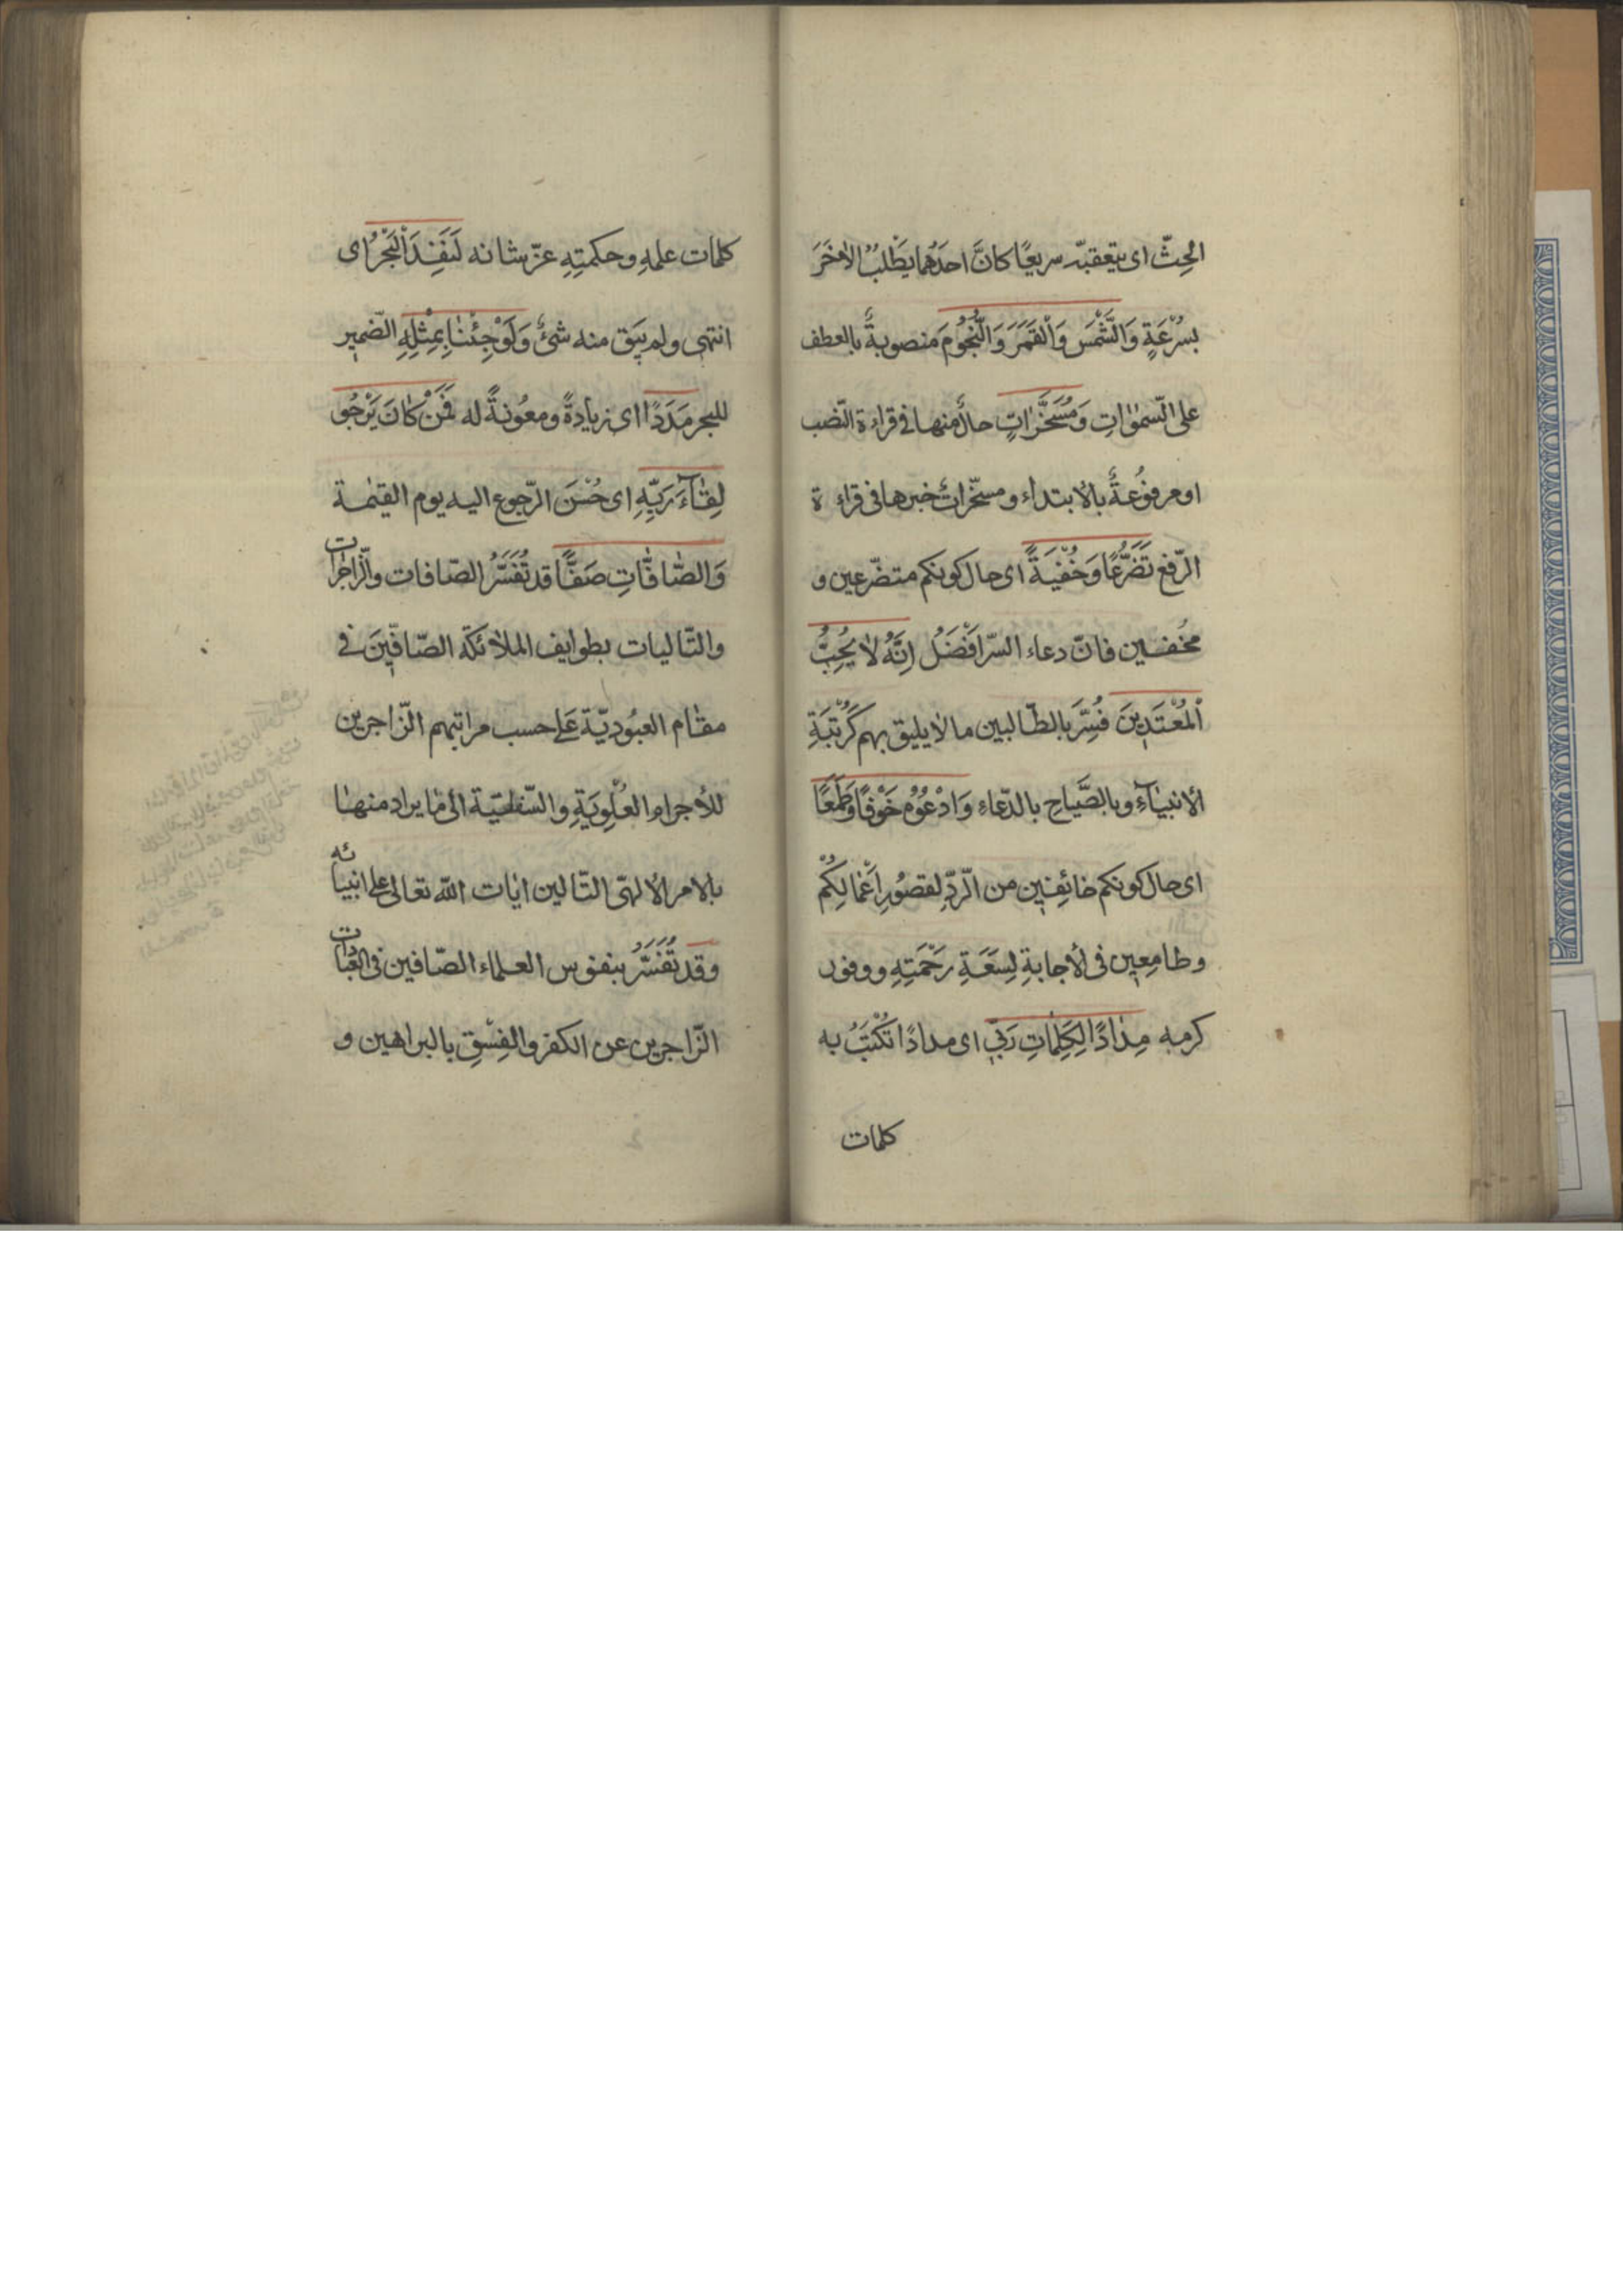 الحِثّ اى يتعقبه سريعًا كانَّ احدَهُما يَطْلبُ الاٰخَرَ
بسُرْعَةٍ وَالشَّمْسَ وَالْقَمَرَ وَالنُّجُوُمَ مَنصوبةٌ بالعطف
على السّمٰوٰاتِ وَمُسَخَّرٰاتٍ حالٌ منها فى قراءة النّصب
او مرفوُعةٌ بالابتداء ومسخّراتٌ خبرها فى قراءة
الرّفع تَضَرُّعًا وَخُفْيَةً اى حال كونكم متضرّعين و
مخُفين فانّ دعاء السرّ افْضَلُ اِنَّهُ لاٰ يُحِبُّ
الْمُعْتَدِينَ فُسِّرَ بالطّالبين ما لا يليق بهم كَرُتْبَةِ
الانبيٰآءِ وبالصَّيٰاحِ بالدّعاء وَادْعُوُهُ خَوْفًا وَطَمَعًا
اى حال كونكم خائِفين من الرّدِّ لقصُورِ اَعْمٰالِكُمْ
وطامِعِين فى الأجابةِ لِسَعَةِ رَحْمَتِهِ ووفور
كرمه مِدٰادًا لِكَلِمٰاتِ رَبّى اى مدادًا تُكْتَبُ به
كلمات
كلمٰات علمهِ وحكمتِهِ عزّ شانه لَنَفِدَ الْبَحْرُ اى
انتهى ولم يَبَق منه شئٌ وَلَوْ جِئْنٰا بِمِثْلِهِ الضّمير
للبحر مَدَدًا اى زيادةً ومعُونةً له فَمَنْ كٰانَ يَرْجُو
لِقٰآءَ رَبِّهِ اى حُسْنَ الرّجوع اليه يوم القيٰمة
وَالصّٰافّٰاتِ صَفًّا قد تُفَسَّرُ الصّافات والزّاجرٰات
والتّاليات بطوايف الملاٰئكة الصّافّينَ فى
مقٰام العبُوديّة عَلى حسب مراتبهم الزّاجرين
للأجرام العُلْوِيَةِ والسّفليّة الى مٰا يراد منهٰا
بالامر الالهىّ التّالين اٰيات اللّه تعالى على انبيٰائه
وقد تُفَسَّرُ بنفوس العلماء الصّافين فى العبٰادٰات
الزّاجرين عن الكفر والفِسْقِ بالبراهين و